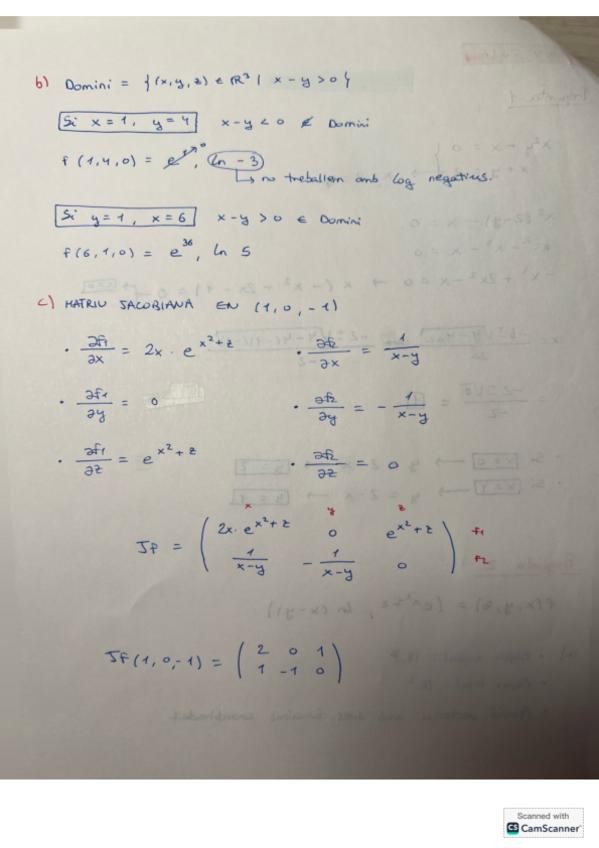 b) Domini = {(x,y,z) ∈ R³ | x-y>0}
Si x=1, y=4 x-y<0 ∉ Domini
f(1,4,0) = e^0, ln -3
↳ no treballem amb log negatius.
Si y=1, x=6 x-y>0 ∈ Domini
f(6,1,0) = e^36, ln 5
c) MATRIU JACOBIANA EN (1,0,-1)
· ∂f1/∂x = 2x · e^(x²+z) · ∂f2/∂x = 1/(x-y)
· ∂f1/∂y = 0 · ∂f2/∂y = - 1/(x-y)
· ∂f1/∂z = e^(x²+z) · ∂f2/∂z = 0
x y z
Jf = ( 2x·e^(x²+z) 0 e^(x²+z) ) f1
( 1/(x-y) - 1/(x-y) 0 ) f2
Jf(1,0,-1) = ( 2 0 1
1 -1 0 )
Scanned with
CS CamScanner